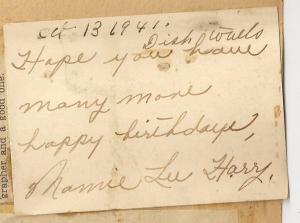 Oct 13 1941.
Dish towels
Hope you have
many more
happy birthdays,
Mamie Lu Harry.
grapher and a good one.